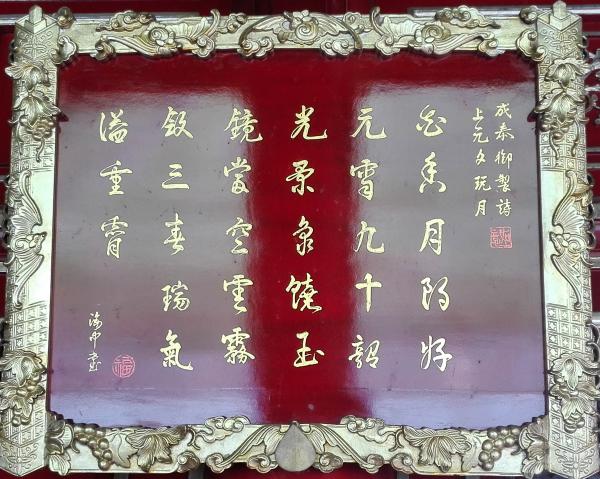 成泰御製詩
上元夕玩月
月好
元宵九十韶
光景象饒玉
鏡當空雲霧
斂三春瑞氣
溢重霄